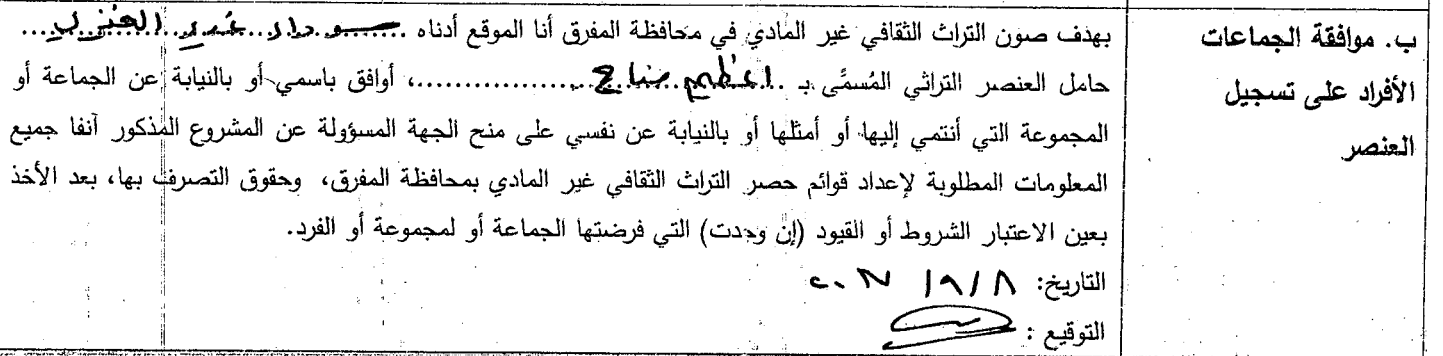 ب. موافقة الجماعات
الأفراد على تسجيل
العنصر
بهدف صون التراث الثقافي غير المادي في محافظة المفرق أنا الموقع أدناه ....................
حامل العنصر التراثي المُسمَّى بـ ....عظيم ضاح....................، أوافق باسمي أو بالنيابة عن الجماعة أو
المجموعة التي أنتمي إليها أو أمثلها أو بالنيابة عن نفسي على منح الجهة المسؤولة عن المشروع المذكور آنفا جميع
المعلومات المطلوبة لإعداد قوائم حصر التراث الثقافي غير المادي بمحافظة المفرق، وحقوق التصرف بها، بعد الأخذ
بعين الاعتبار الشروط أو القيود (إن وجدت) التي فرضتها الجماعة أو لمجموعة أو الفرد.
التاريخ: ٨ / ٩ /
التوقيع :